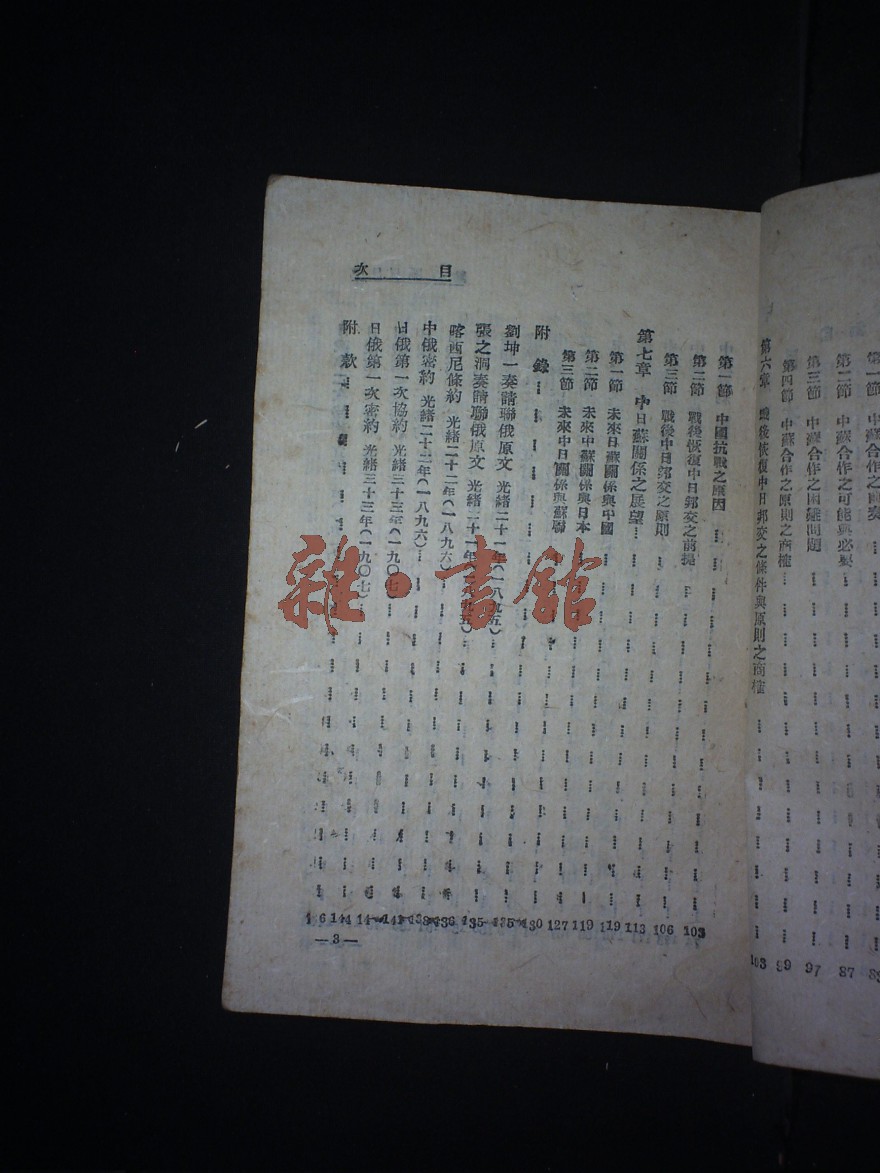 第二節 中蘇合作之可能與必要 87
第三節 中蘇合作之困難問題 97
第四節 中蘇合作之原則之商榷 99
第六章 戰後恢復中日邦交之條件與原則之商榷 103
目次
第一節 中國抗戰之原因 103
第二節 戰後恢復中日邦交之前提 106
第三節 戰後中日邦交之原則 113
第七章 中日蘇關係之展望 119
第一節 未來日蘇關係與中國 119
第二節 未來中蘇關係與日本 127
第三節 未來中日關係與蘇聯 130
附錄
劉坤一奏請聯俄原文 光緒二十一年(一八九五) 135
張之洞奏請聯俄原文 光緒二十一年(一八九五) 135
喀西尼條約 光緒二十二年(一八九六) 136
中俄密約 光緒二十二年(一八九六)
日俄第一次協約 光緒三十三年(一九〇七)
日俄第一次密約 光緒三十三年(一九〇七)
附款 144
—3—
雜·書館